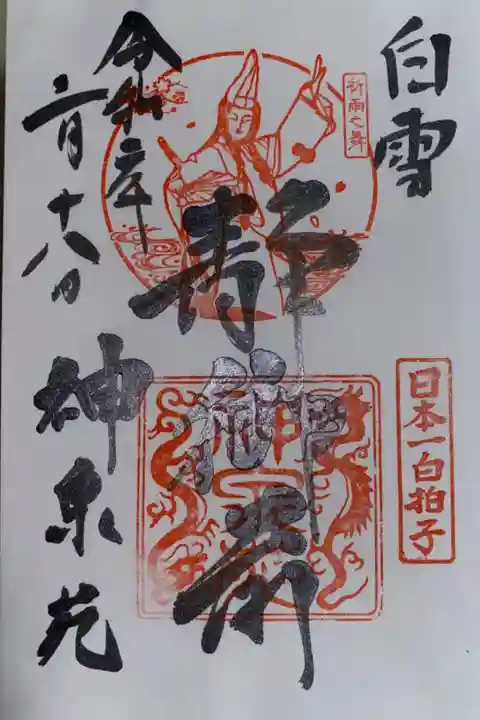 白雪
祈雨之舞
日本一白拍子
静御前
令和二年
二月十八日
神泉苑